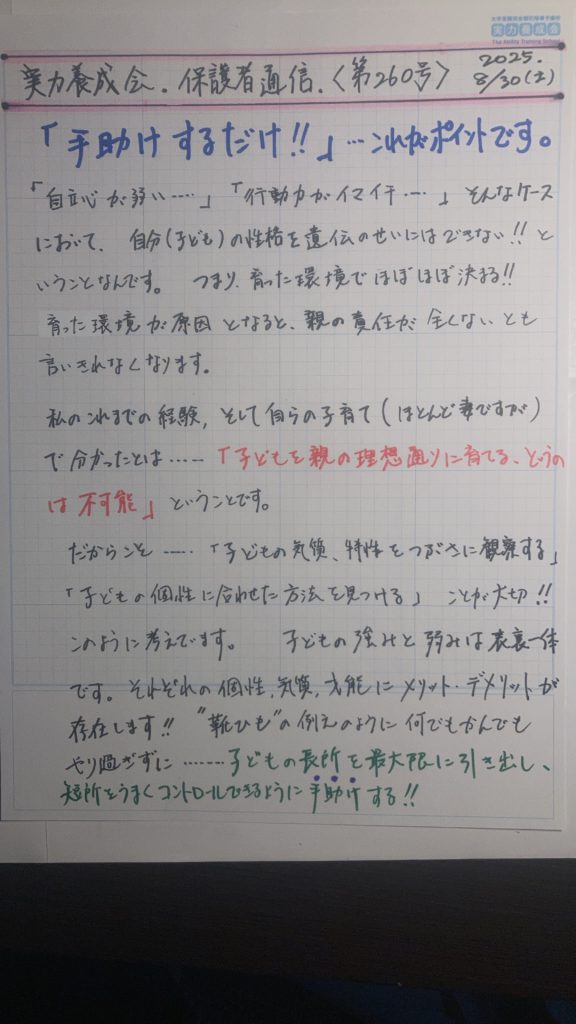 大学受験完全個別指導予備校
実力養成会
The Ability Training School
実力養成会.保護者通信.〈第260号〉 2025. 8/30(土)
「手助けするだけ!!」…これがポイントです。
「自立心が弱い……」「行動力がイマイチ…」そんなケース
において、自分(子ども)の性格を遺伝のせいにはできない!!と
いうことなんです。 つまり、育った環境でほぼほぼ決まる!!
育った環境が原因となると、親の責任が全くないとも
言いきれなくなります。
私のこれまでの経験,そして自らの子育て(ほとんど妻ですが)
で分かったとは……「子どもを親の理想通りに育てる、というの
は不可能」ということです。
だからこそ……「子どもの気質、特性をつぶさに観察する」
「子どもの個性に合わせた方法を見つける」ことが大切!!
このように考えてます。 子どもの強みと弱みは表裏一体
です。それぞれの個性,気質,才能にメリット・デメリットが
存在します!!"靴ひも"の例えのように何でもかんでも
やり過ぎずに………子どもの長所を最大限に引き出し、
短所をうまくコントロールできるように手助けする!!